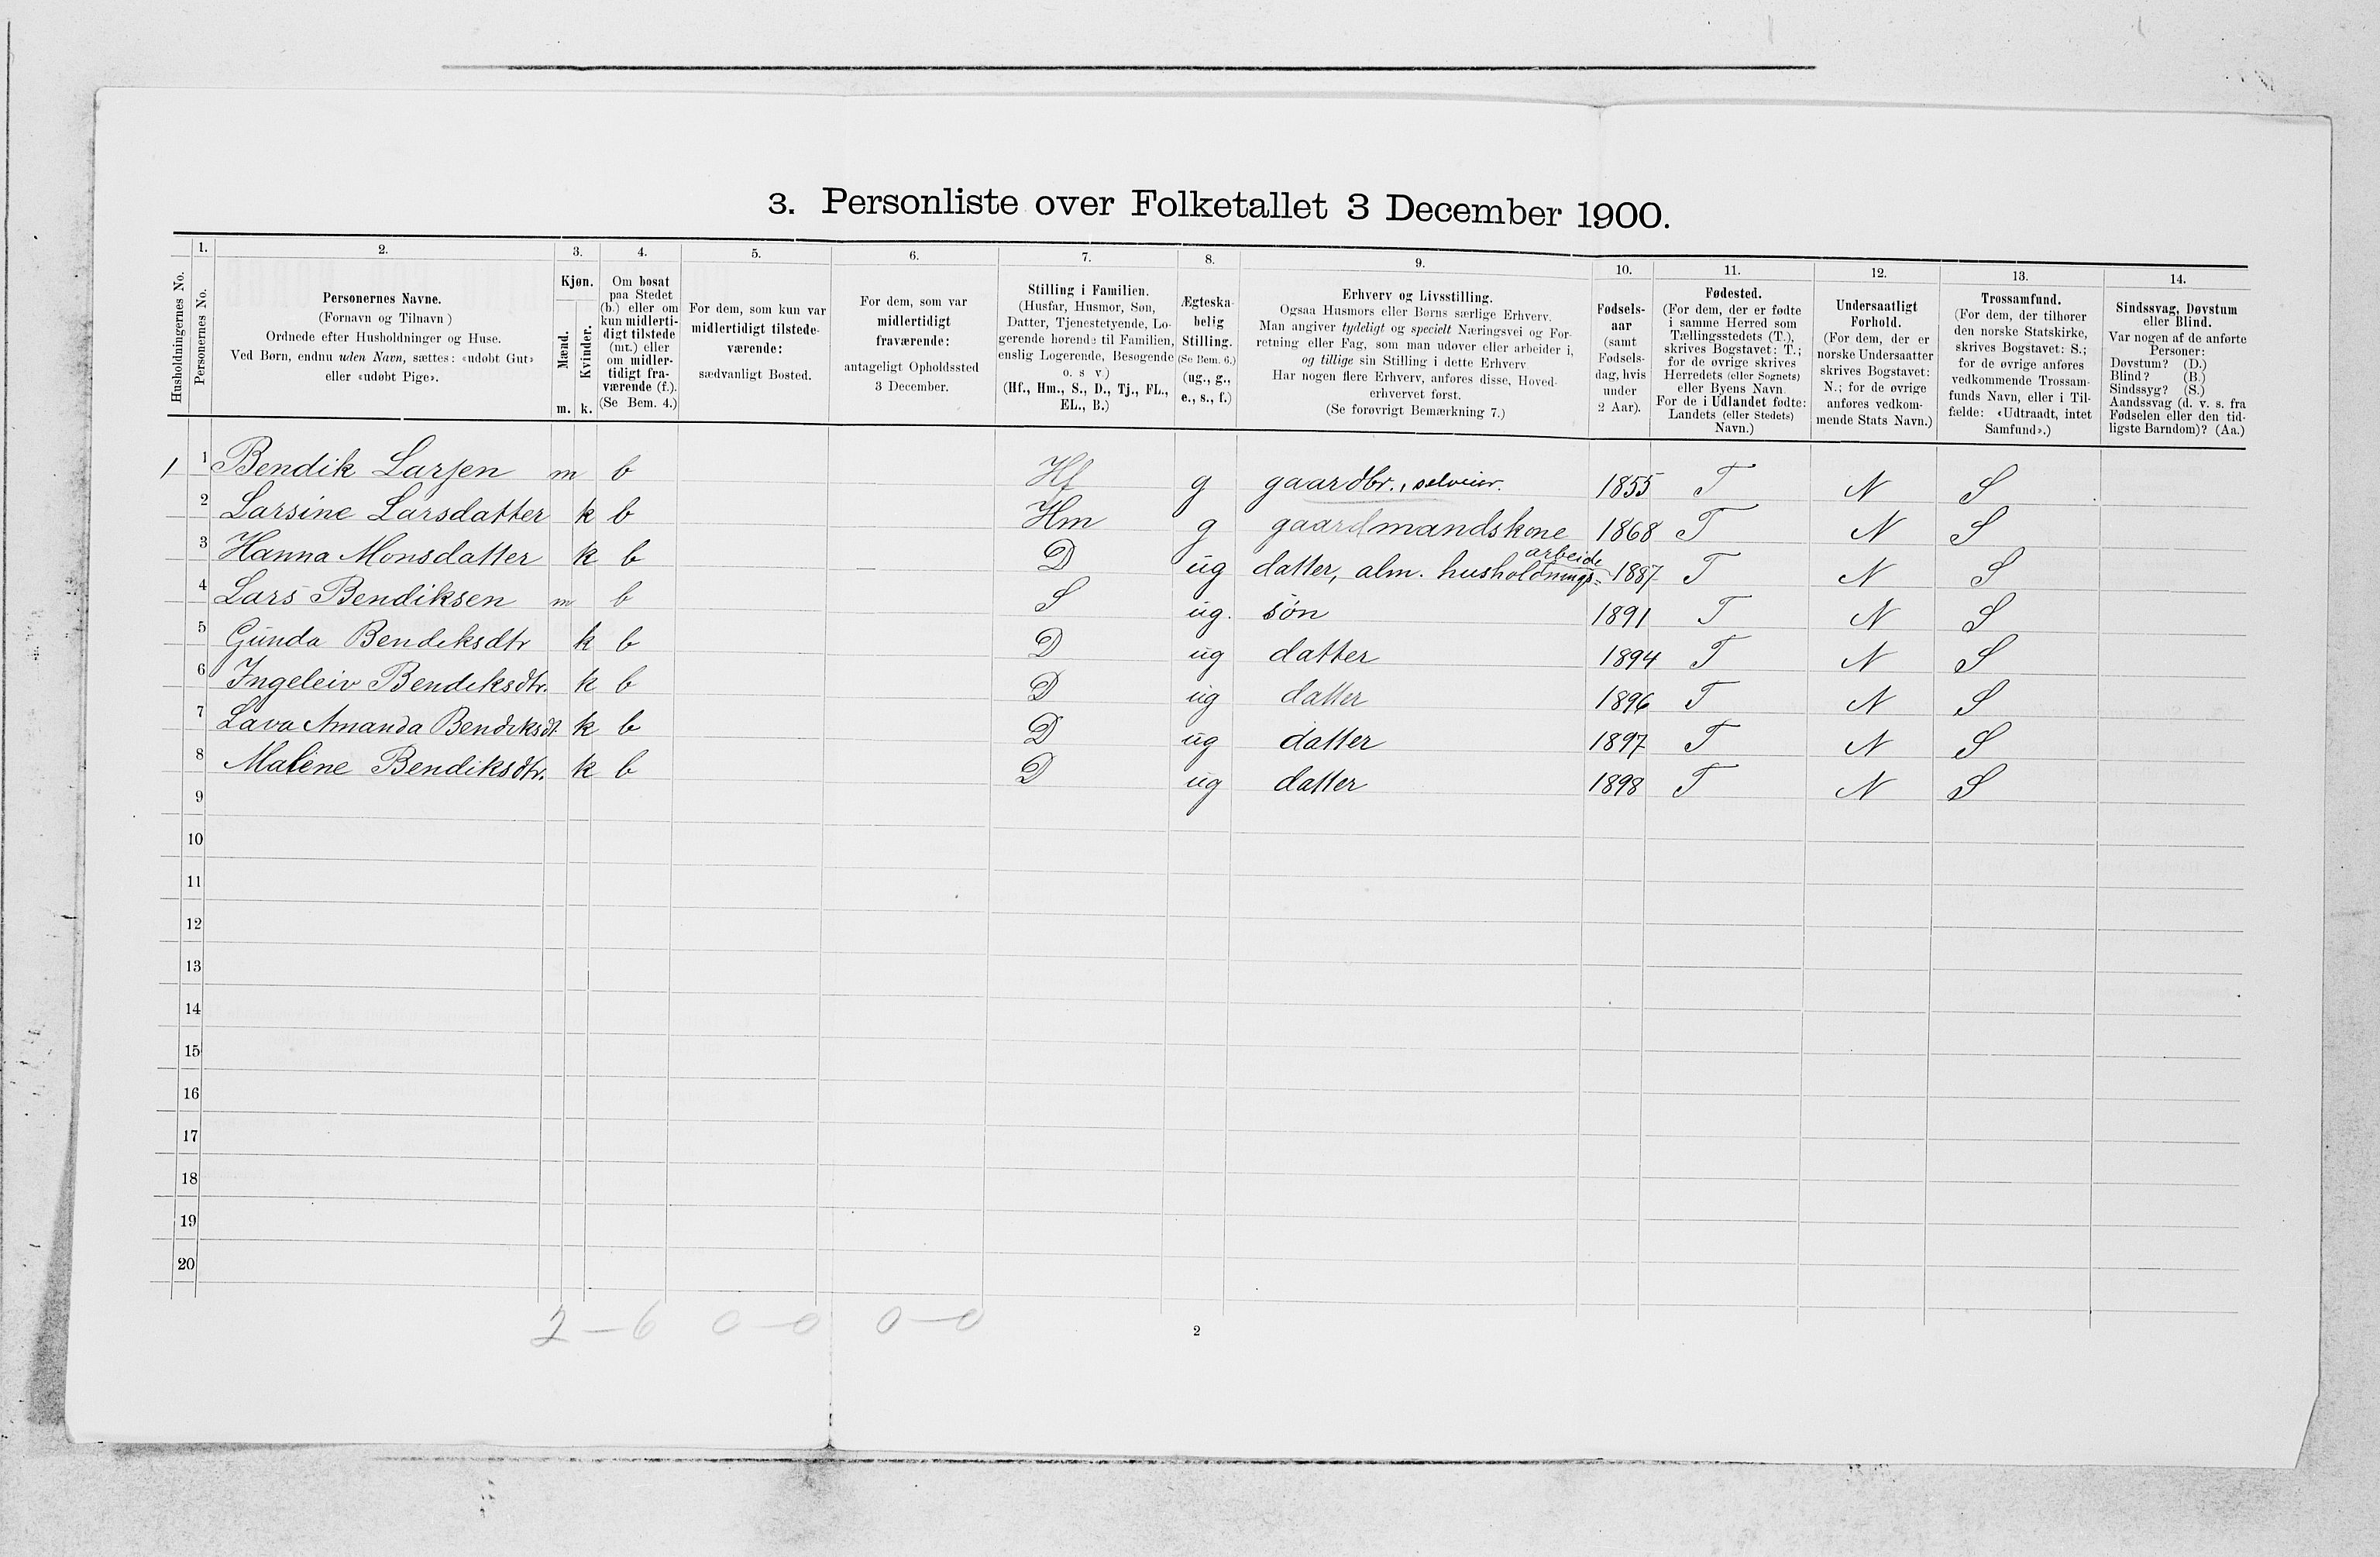 3. Personliste over Folketallet 3 December 1900.
Husholdningernes No.
1.
Personernes No.
2.
Personernes Navne.
(Fornavn og Tilnavn)
Ordnede efter Husholdninger og Huse.
Ved Børn, endnu uden Navn, sættes: «udøbt Gut»
eller «udøbt Pige».
3.
Kjøn.
Mænd.
Kvinder.
m. k.
4.
Om bosat
paa Stedet
(b.) eller om
kun midlerti-
digt tilstede
(mt.) eller
om midler-
tidigt fra-
værende (f.).
(Se Bem. 4.)
5.
For dem, som kun var
midlertidigt tilstede-
værende:
sædvanligt Bosted.
6.
For dem, som var
midlertidigt
fraværende:
antageligt Opholdssted
3 December.
7.
Stilling i Familien.
(Husfar, Husmor, Søn,
Datter, Tjenestetyende, Lo-
gerende hørende til Familien,
enslig Logerende, Besøgende
o. s v.)
(Hf., Hm., S., D., Tj., FL.,
EL., B.)
8.
Ægteska-
belig
Stilling.
(Se Bem. 6.)
(ug., g.,
e., s., f.)
9.
Erhverv og Livsstilling.
Ogsaa Husmors eller Børns særlige Erhverv.
Man angiver tydeligt og specielt Næringsvei og For-
retning eller Fag, som man udøver eller arbeider i,
og tillige sin Stilling i dette Erhverv
Har nogen flere Erhverv, anføres disse, Hoved-
erhvervet først.
(Se forøvrigt Bemærkning 7.)
10.
Fødsels-
aar
(samt
Fødsels-
dag, hvis
under
2 Aar).
11.
Fødested.
(For dem, der er fødte
i samme Herred som
Tællingsstedets (T.),
skrives Bogstavet: T.;
for de øvrige skrives
Herredets (eller Sognets)
eller Byens Navn
For de i Udlandet fødte:
Landets (eller Stedets)
Navn.)
12.
Undersaatligt
Forhold.
(For dem, der er
norske Undersaatter
skrives Bogstavet:
N.; for de øvrige
anføres vedkom-
mende Stats Navn.)
13.
Trossamfund.
(For dem, der tilhører
den norske Statskirke,
skrives Bogstavet: S.;
for de øvrige anføres
vedkommende Trossam-
funds Navn, eller i Til-
fælde: «Udtraadt, intet
Samfund».)
14.
Sindssvag, Døvstum
eller Blind.
Var nogen af de anførte
Personer:
Døvstum? (D.)
Blind? (B.)
Sindssyg? (S.)
Aandssvag (d. v. s. fra
Fødselen eller den tid-
ligste Barndom)? (Aa.)
1 1 Bendik Larsen m b Hf g gaardbr., selveier. 1855 T N S
2 Larsine Larsdatter k b Hm g gaardmandskone 1868 T N S
3 Hanna Monsdatter k b D ug datter, alm. husholdnings= arbeide 1887 T N S
4 Lars Bendiksen m b S ug. søn 1891 T N S
5 Gunda Bendiksdtr k b D ug datter 1894 T N S
6 Ingeleiv Bendiksdtr. k b D ug datter 1896 T N S
7 Lava Amanda Bendiksdt. k b D ug datter 1897 T N S
8 Malene Bendiksdtr. k b D ug datter 1898 T N S
9
10
11
12
13
14
15
16
17
18
19
20
2 – 6 0 – 0 0 – 0
2